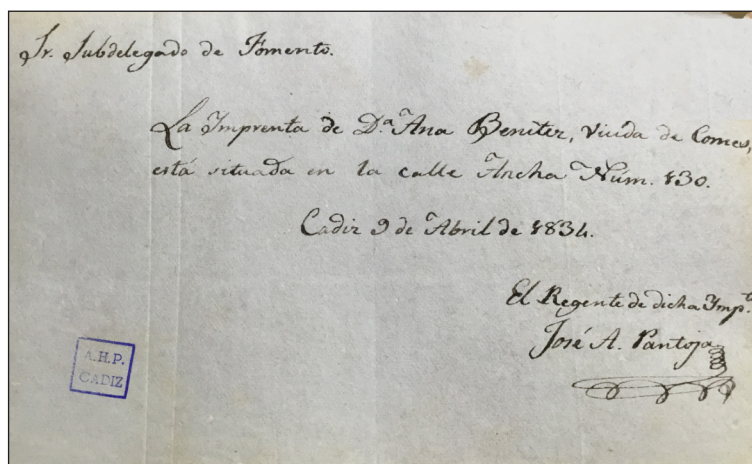 Sr. Subdelegado de Fomento.
La Imprenta de D.ª Ana Benitez, Viuda de Comes,
está situada en la calle Ancha Núm. 130.
Cadiz 9 de Abril de 1834.
El Regente de dicha Imp.ta
José A. Pantoja
A.H.P.
CADIZ